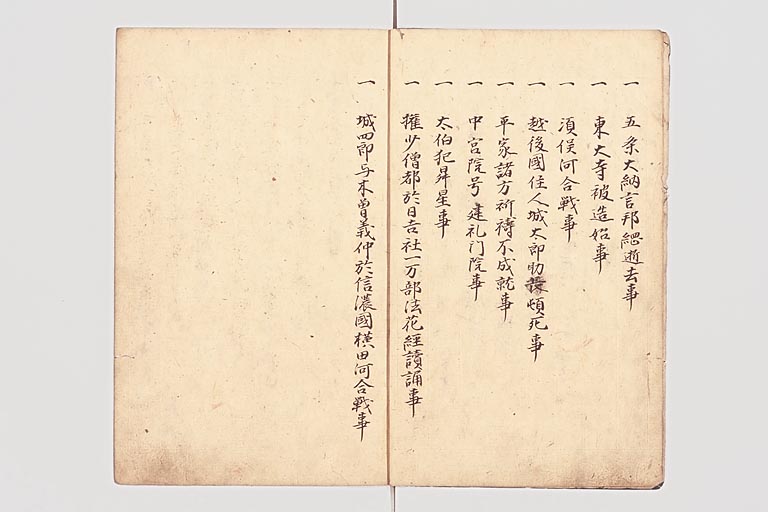 一 五条大納言邦綱逝去事
一 東大寺被造始事
一 須俣河合戦事
一 越後國住人城太郎助 頓死事
一 平家諸方祈祷不成就事
一 中宮院号建礼门院事
一 太伯犯昴星事
一 権少僧都於日吉社一万部法花經讀誦事
一 城四郎与木曽義仲於信濃國横田河合戦事